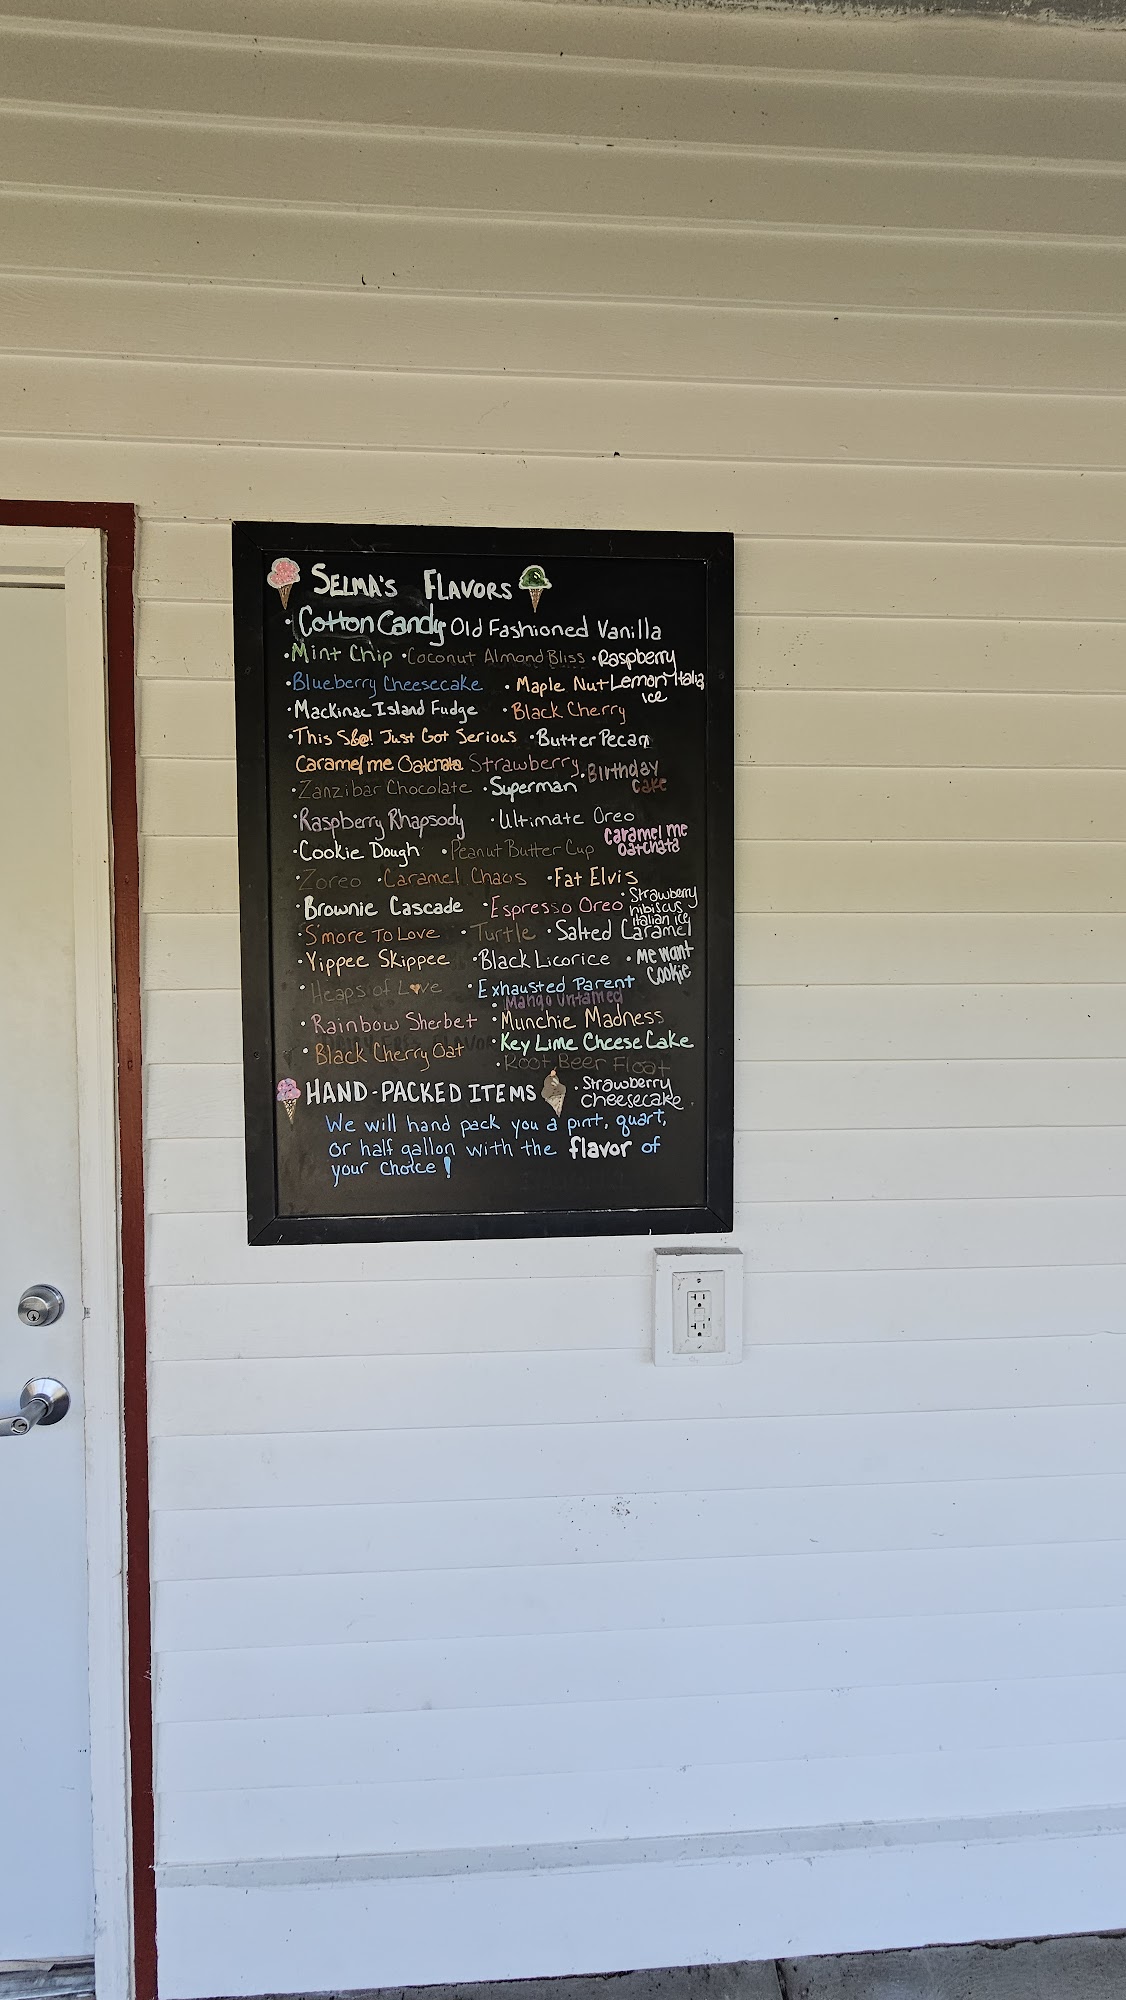 SELMA'S FLAVORS
• Cotton Candy Old Fashioned Vanilla
• Mint Chip • Coconut Almond Bliss • Raspberry
Lemon Italia
ice
• Blueberry Cheesecake • Maple Nut
• Mackinac Island Fudge • Black Cherry
• This S&@! Just Got Serious • Butter Pecan
Caramel me Oatchata Strawberry
• Birthday
Cake
• Zanzibar Chocolate • Superman
• Raspberry Rhapsody • Ultimate Oreo
• Cookie Dough • Peanut Butter Cup
Caramel me
Oatchata
• Zoreo • Caramel Chaos • Fat Elvis
• Brownie Cascade • Espresso Oreo
• Strawberry
hibiscus
italian ice
• S'more To Love • Turtle • Salted Caramel
• Yippee Skippee • Black Licorice
• Me want
Cookie
• Heaps of Love • Exhausted Parent
• Mango Untamed
• Rainbow Sherbet • Munchie Madness
• Black Cherry Oat • Key Lime Cheese Cake
• Root Beer Float
• Strawberry
cheesecake
HAND-PACKED ITEMS
We will hand pack you a pint, quart,
or half gallon with the flavor of
your choice!